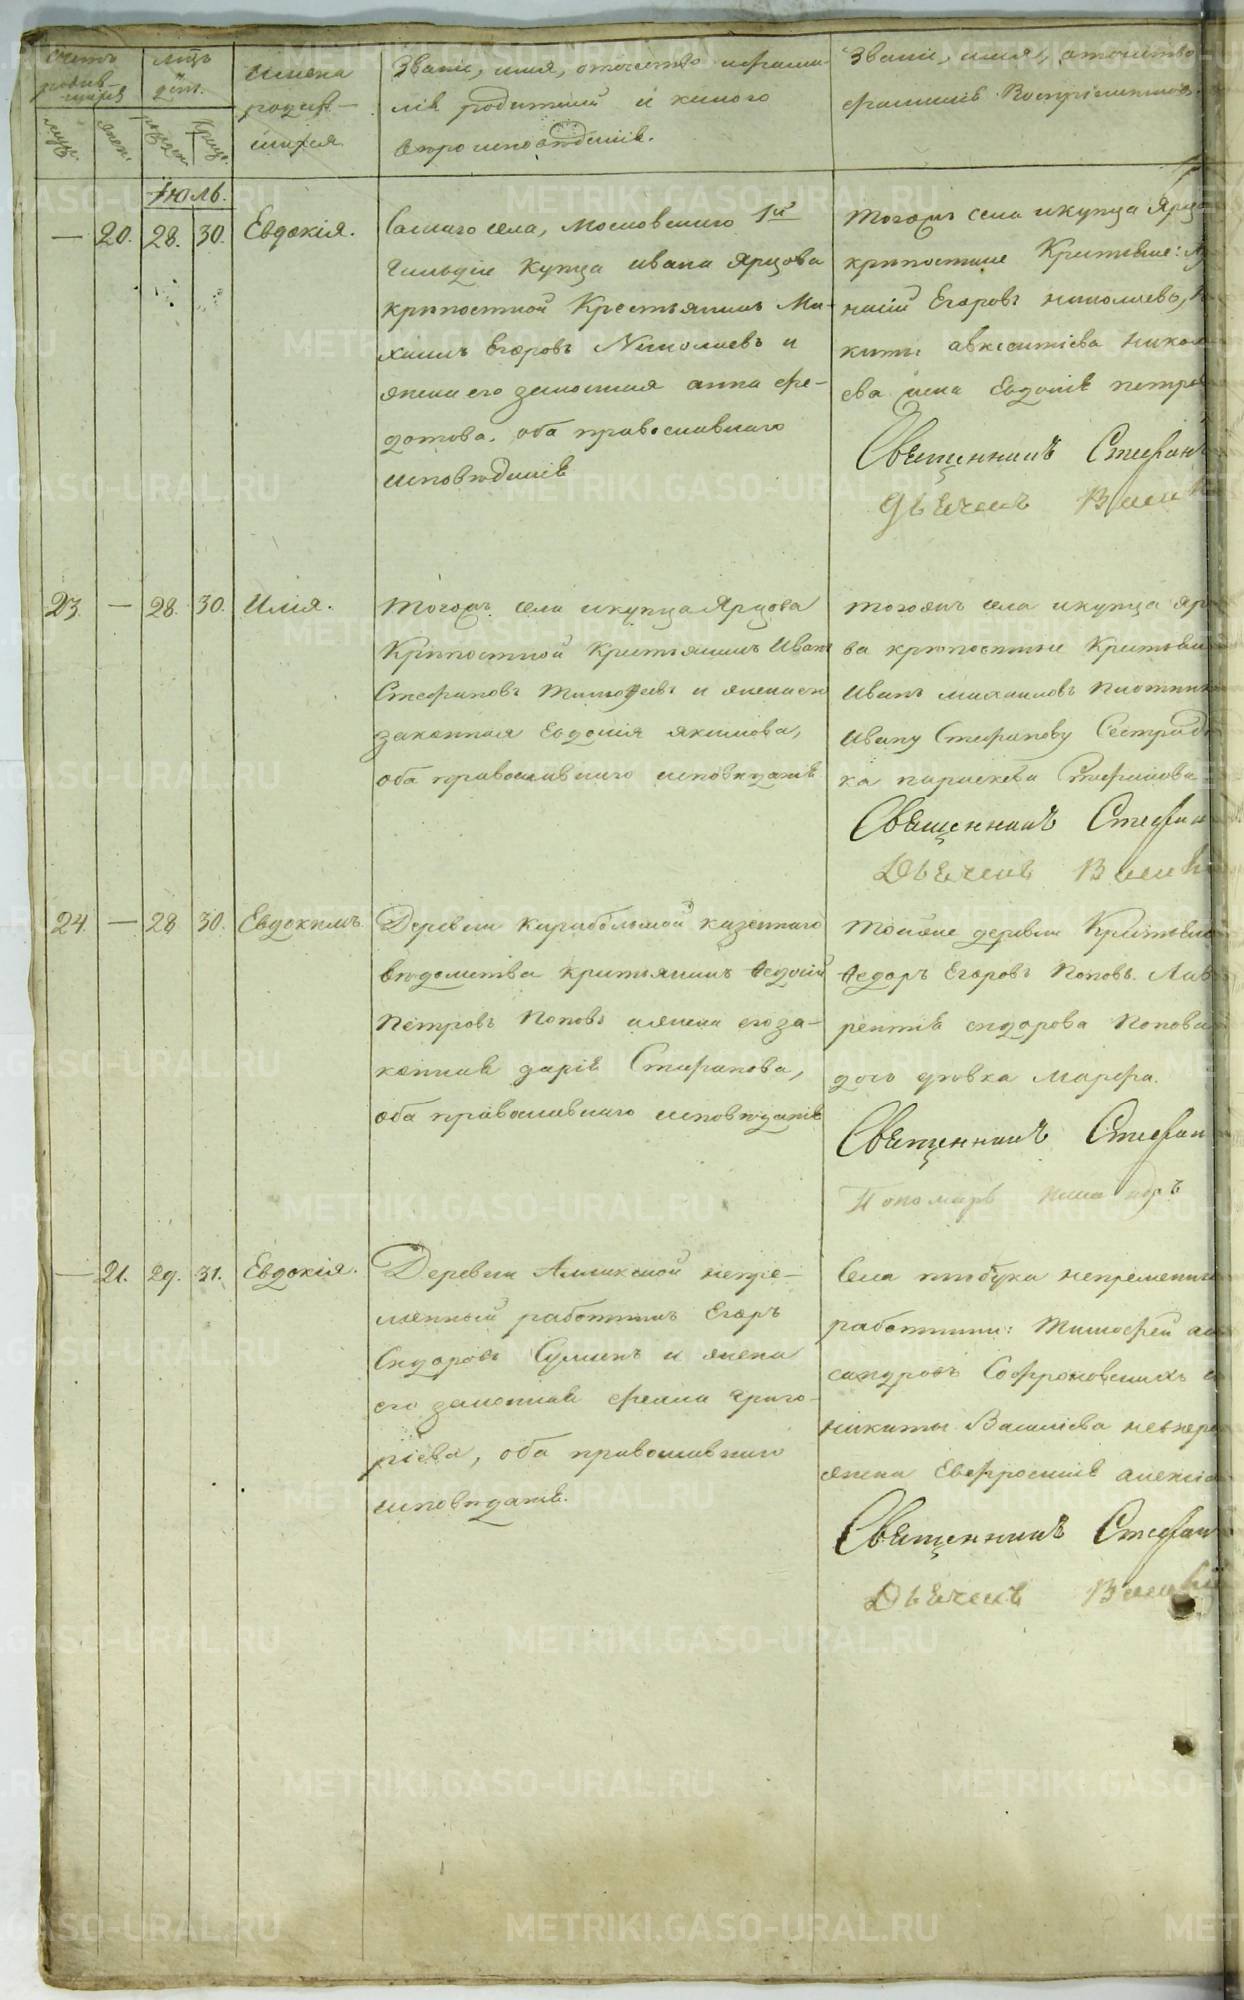 Счетъ родив-шихся
муж.
жен.
Мцъ дни.
рожден.
Крещ.
имена
родив-
шихся
Званіе, имя, отечество и фами-
лія родителей и какого
вероисповѣданія.
Званіе, имя, отечество
фамилія Воспріемниковъ.
Іюль.
— 20. 28. 30. Евдокія.
Самаго села, Московскаго 1й
Гильдіи Купца Ивана Ярцова
крѣпостной Крестьянинъ Ми-
хаилъ Егоровъ Николаевъ и
жена его законная анна фе-
дотова, оба православнаго
исповѣданія
Тогожъ села и купца Ярцо
крѣпостные Крестьяне:
Егоровъ николаевъ,
киты авксентіева никол
ева жена Евдокія петро
Священникъ Стефанъ
Дьячекъ Васил
23. — 28. 30. Илія.
Тогожъ села и купца Ярцова
Крѣпостной Крестьянинъ Иванъ
Стефановъ Тимофеевъ и жена его
законная Евдокія якимова,
оба православнаго исповѣданія
Тогожъ села и купца яр
ва крѣпостные Крестьян
Иванъ михаиловъ плотник
Ивану Стефанову Сестра д
ка параскева Стефанова
Священникъ Стефан
Дьячекъ Васил
24. — 28 30. Евдокимъ.
Деревни Карабольской казеннаго
вѣдомства крестьянинъ Федосій
Петровъ Поповъ и жена его за-
конная дарія Стефанова,
оба православнаго исповѣданія
Тойже деревни Крестьян
Федоръ Егоровъ Поповъ. Лав
рентія сидорова Попова
дочь дѣвка Марфа.
Священникъ Стефан
Пономарь
— 21. 29. 31. Евдокія.
Деревни непре-
мѣнный работникъ Егоръ
Сидоровъ и жена
его законная Григо-
ріева, оба православнаго
исповѣданія.
Села непремѣнн
работники: Тимофей ал
сандровъ Софроновскихъ и
никиты Василіева
жена Евфросинія алексѣ
Священникъ Стефан
Дьячекъ Васил
METRIKI.GASO-URAL.RU